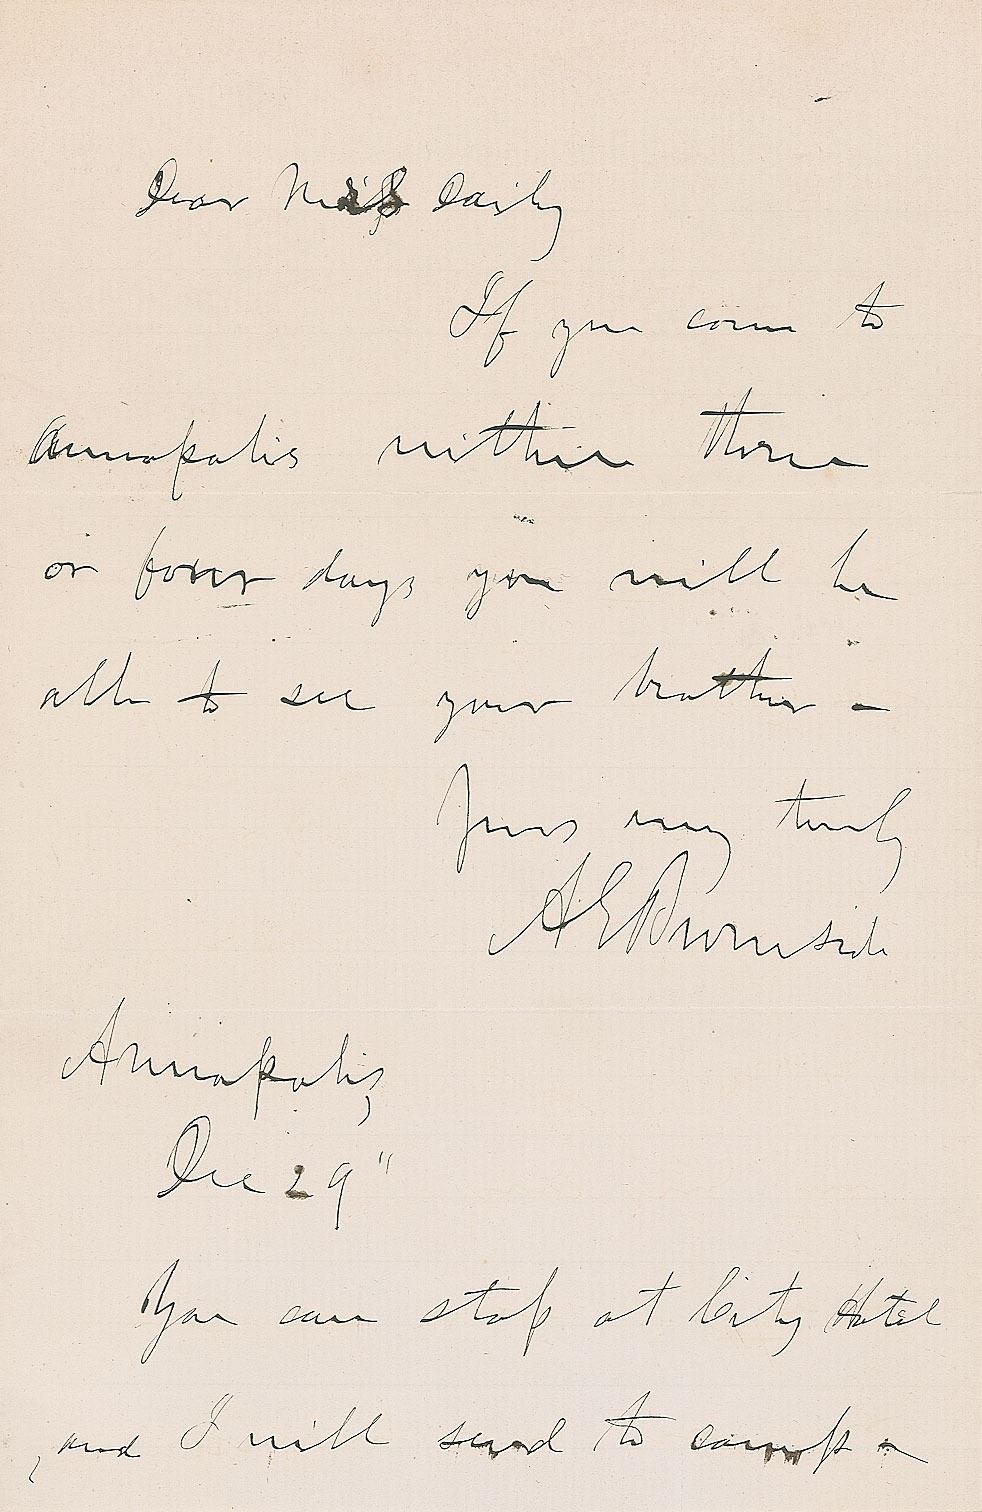 Dear Miss Daily
If you come to
Annapolis within three
or four days you will be
able to see your brother -
Yours very truly
A E Burnside
Annapolis,
Dec 29"
You can stop at City Hotel
, and I will send to camp -